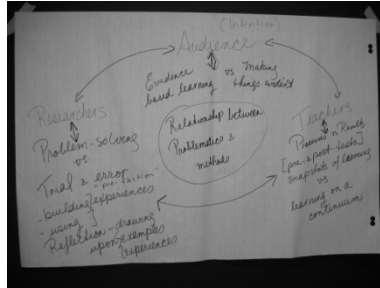 (Intention)
Audience
Evidence
based learning
vs
Making
things evident
Researchers
Problem-solving
vs.
Trial & error
- building experiences
- using
Reflection - drawing
upon examples
experiences
Relationship between
Problematics &
methods
Teachers
Process vs Results
[pre & post-tests]
snapshots of learning
vs
learning on a
continuum